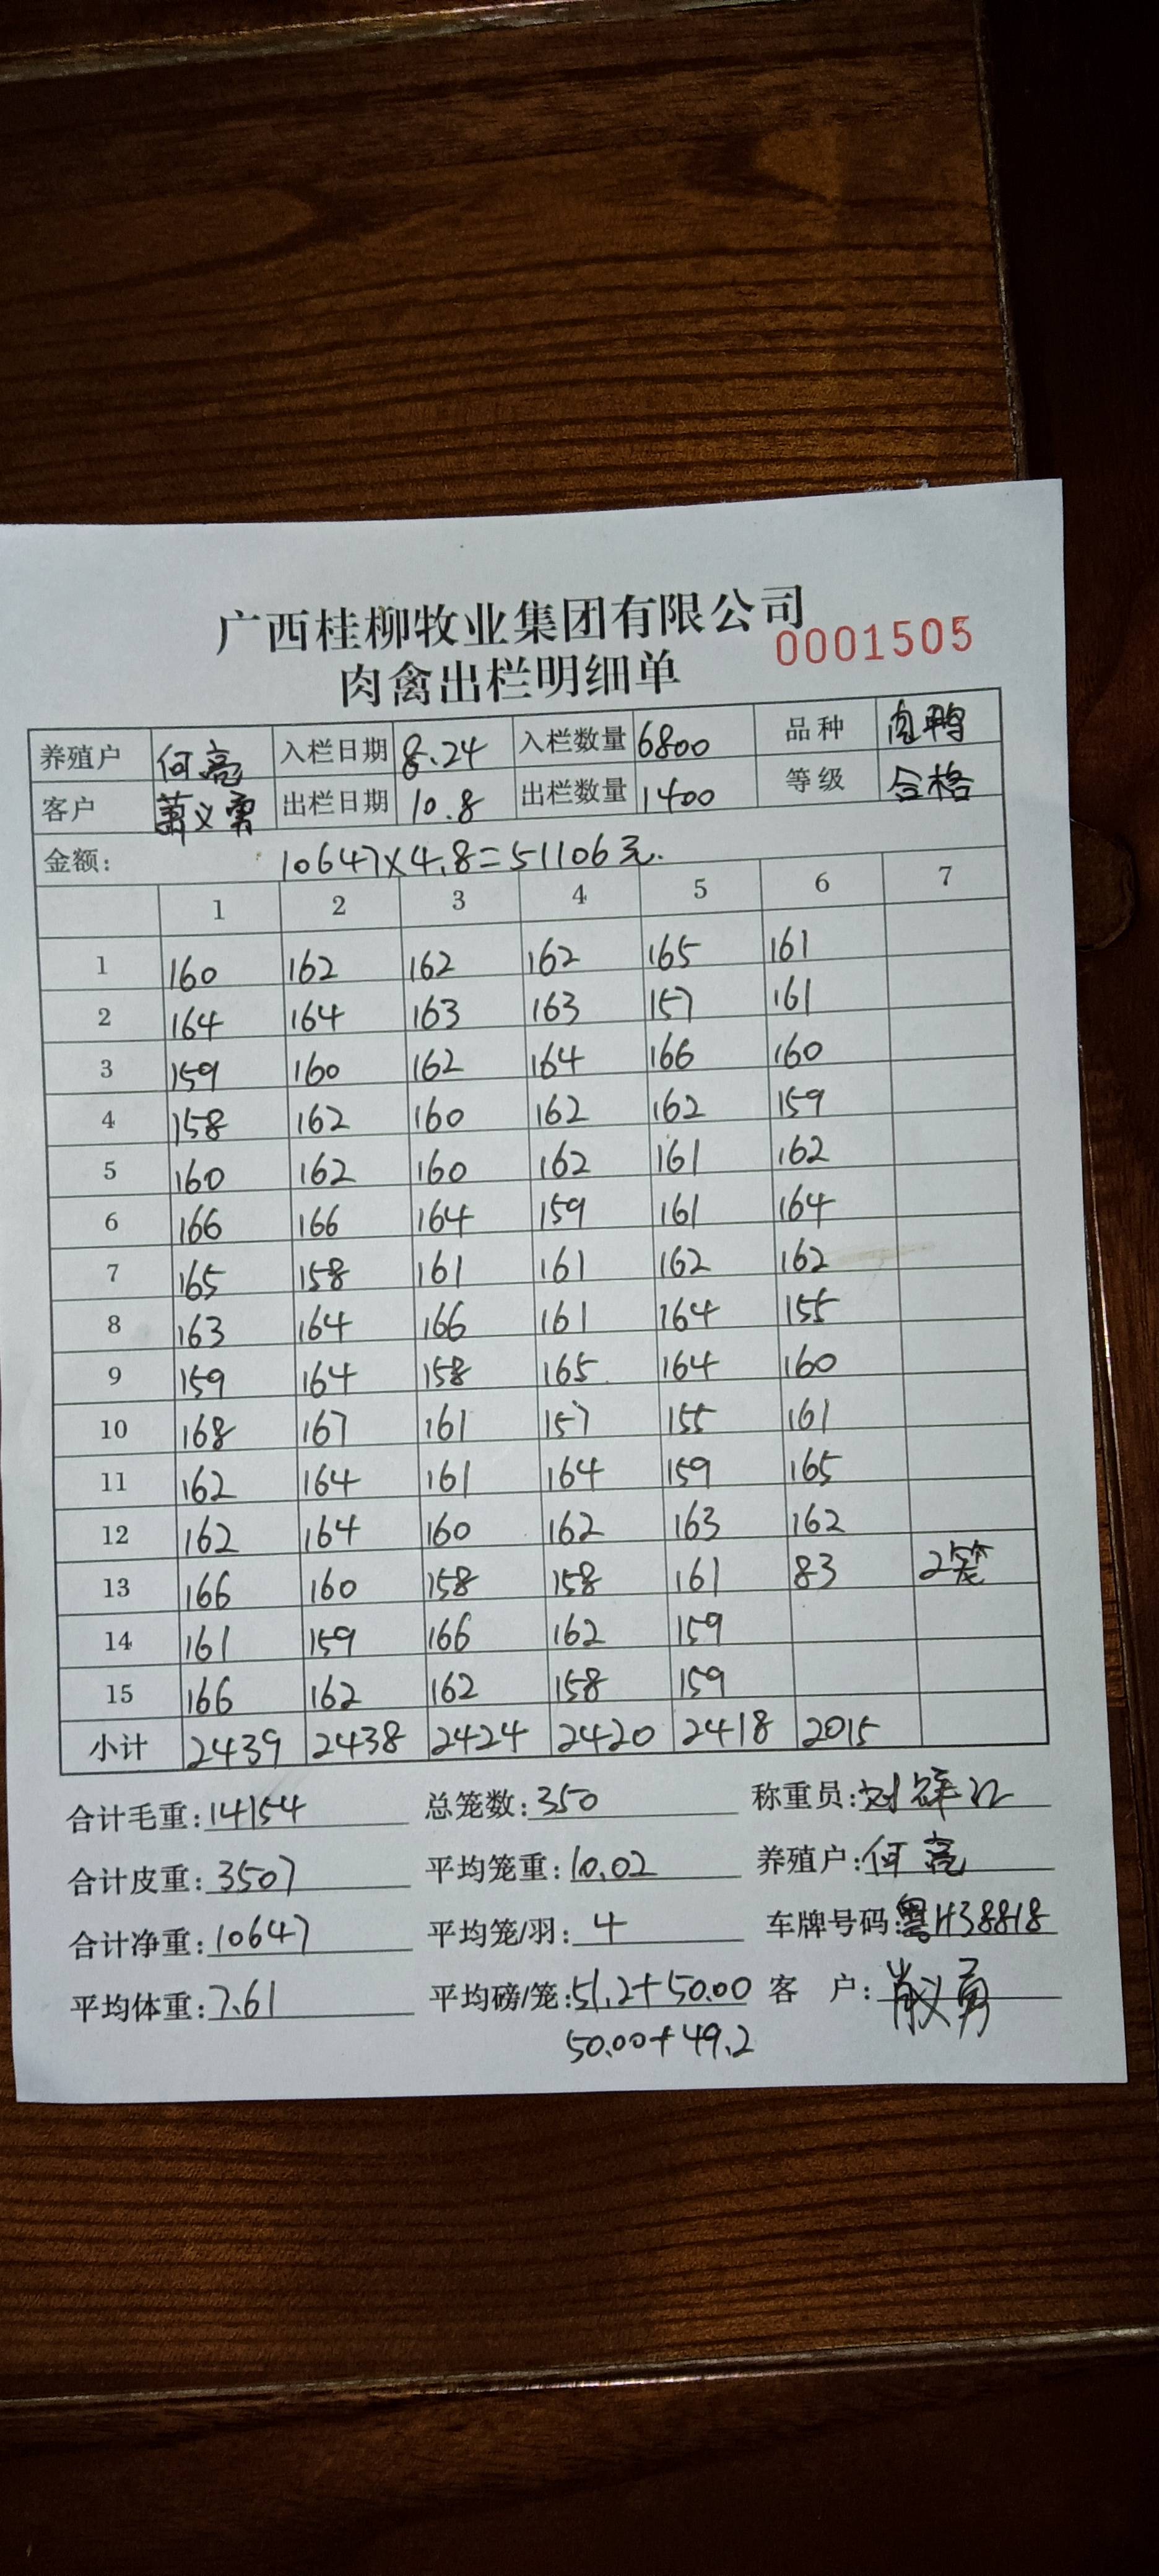 广西桂柳牧业集团有限公司
0001505
肉禽出栏明细单
养殖户 何亮 入栏日期 8.24 入栏数量 6800 品种 肉鸭
客户 萧义勇 出栏日期 10.8 出栏数量 1400 等级 合格
金额: 10647×4.8=51106元.
1 2 3 4 5 6 7
1 160 162 162 162 165 161
2 164 164 163 163 157 161
3 159 160 162 164 166 160
4 158 162 160 162 162 159
5 160 162 160 162 161 162
6 166 166 164 159 161 164
7 165 158 161 161 162 162
8 163 164 166 161 164 155
9 159 164 158 165 164 160
10 168 167 161 157 155 161
11 162 164 161 164 159 165
12 162 164 160 162 163 162
13 166 160 158 158 161 83 2笼
14 161 159 166 162 159
15 166 162 162 158 159
小计 2439 2438 2424 2420 2418 2015
合计毛重:14154 总笼数:350 称重员:刘祥
合计皮重:3507 平均笼重:10.02 养殖户:何亮
合计净重:10647 平均笼/羽:4 车牌号码:粤H38818
平均体重:7.61 平均磅/笼:51.2+50.00 客 户:肖义勇
50.00+49.2